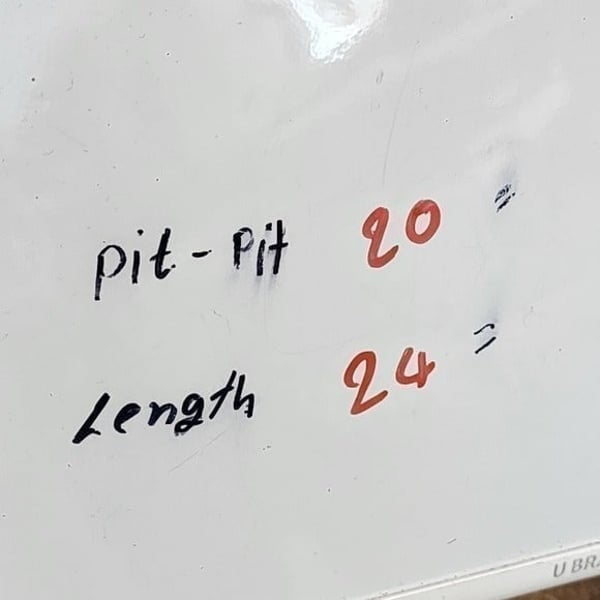 Pit - Pit 20 "
Length 24 "
U BRA